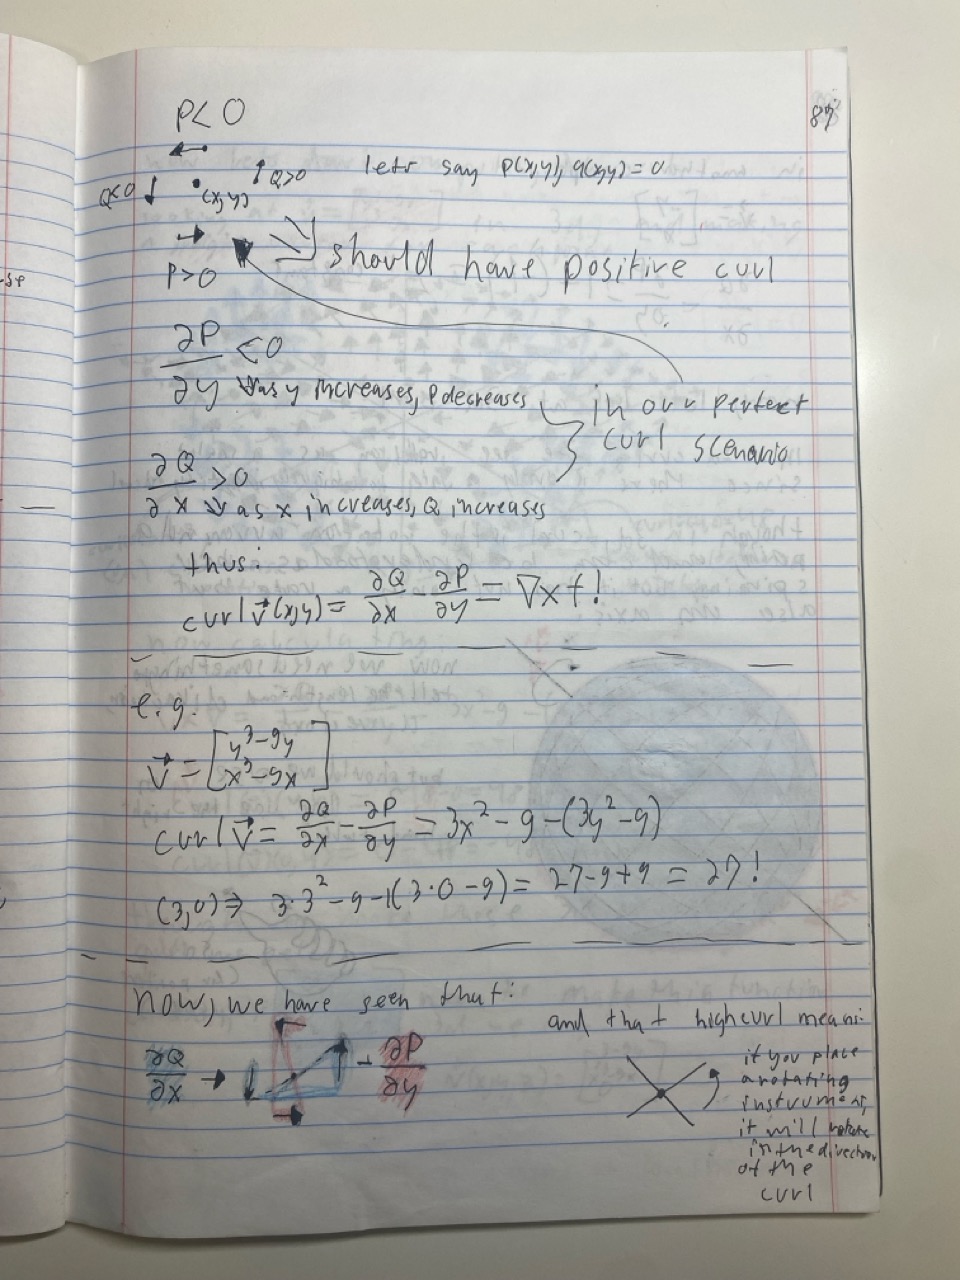 87
P < 0
Q<0 (x,y) Q>0 let's say p(x,y), q(x,y) = 0
P > 0
should have positive curl
∂P/∂y < 0
as y increases, P decreases
in our perfect
curl scenario
∂Q/∂x > 0
as x increases, Q increases
thus:
curl v⃗(x,y) = ∂Q/∂x - ∂P/∂y = ∇xf!
e.g.
v⃗ = [y³-9y
x³-9x]
curl v⃗ = ∂Q/∂x - ∂P/∂y = 3x² - 9 - (3y² - 9)
(3,0) ⇒ 3·3² - 9 - 1(3·0 - 9) = 27 - 9 + 9 = 27!
now, we have seen that:
∂Q/∂x → - ∂P/∂y
and that high curl means:
if you place
a rotating
instrument,
it will rotate
in the direction
of the
curl